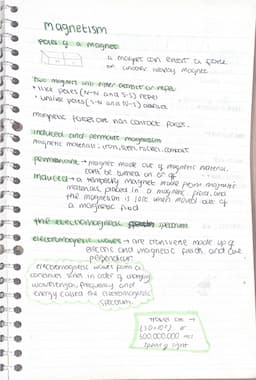 magnetism
poles of a magnet
a magnet can exert a force
on another nearby magnet
two magnets will either attract or repel
• like poles (N-N and S-S) repel
• unlike poles (S-N and N-S) attract
magnetic forces are non contact forces.
induced and permanent magnetism
magnetic materials: iron, steel, nickel, cobalt
permanent → magnet made out of magnetic material.
cant be turned on or off
induced → a temporary magnet made from magnetic
materials, placed in a magnetic field, and
the magnetism is lost when moved out of
a magnetic field
the electromagnetic spectrum
electromagnetic waves → are transverse made up of
electric and magnetic fields and are
perpendicular
electromagnetic waves form a
continuous series in order of varying
wavelength, frequency and
energy called the electromagnetic
spectrum.
travel at →
(3.0×10⁸) or
300,000,000 m/s
speed of light